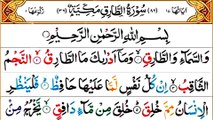 سُوْرَةُ الطَّارِقِ مَكِّيَّةٌ
بِسْمِ اللهِ الرَّحْمٰنِ الرَّحِيْمِ
وَالسَّمَآءِ وَالطَّارِقِ ۝ وَمَآ اَدْرٰىكَ مَا الطَّارِقُ ۝ النَّجْمُ
الثَّاقِبُ ۝ اِنْ كُلُّ نَفْسٍ لَّمَّا عَلَيْهَا حَافِظٌ ۝ فَلْيَنْظُرِ
الْاِنْسَانُ مِمَّ خُلِقَ ۝ خُلِقَ مِنْ مَّآءٍ دَافِقٍ ۝ يَّخْرُجُ مِنْۢ